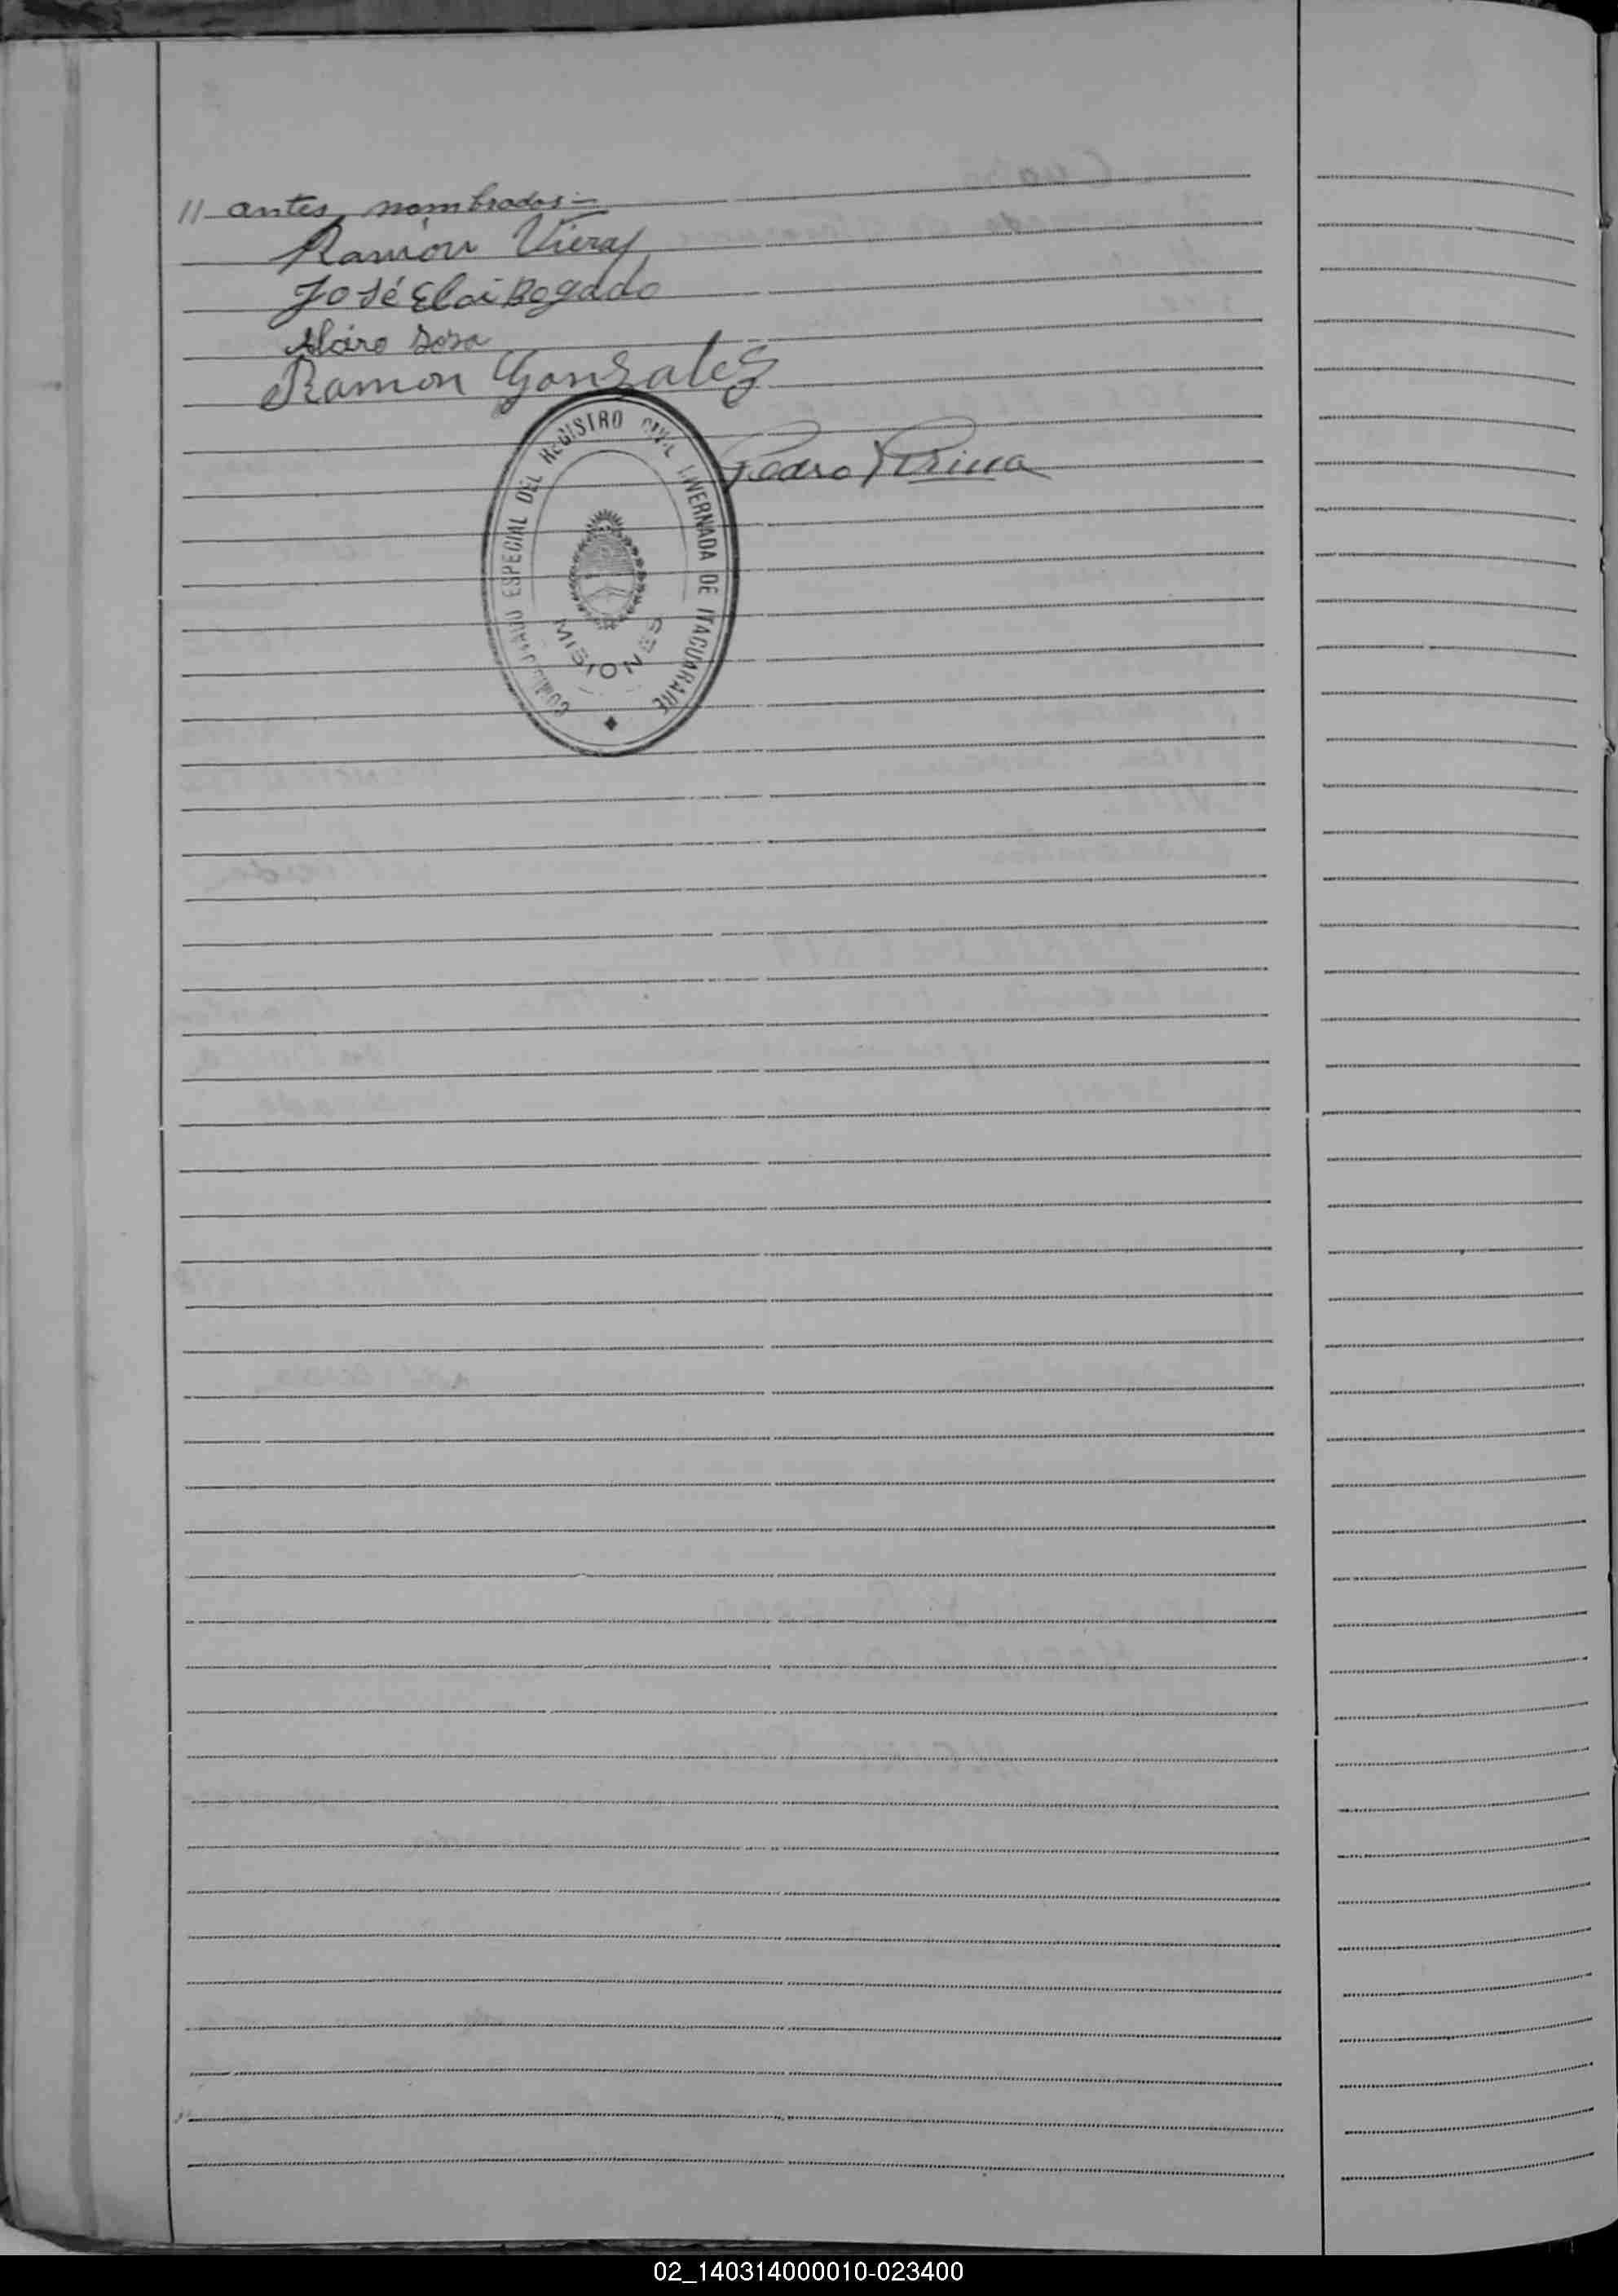 // antes nombrados =
Ramón Vieray
José Eloi Bogado
Sosa
Ramon Gonzalez
Pedro
COMISIONADO ESPECIAL DEL REGISTRO CIVIL INVERNADA DE ITACUARARE
MISIONES
02_140314000010-023400